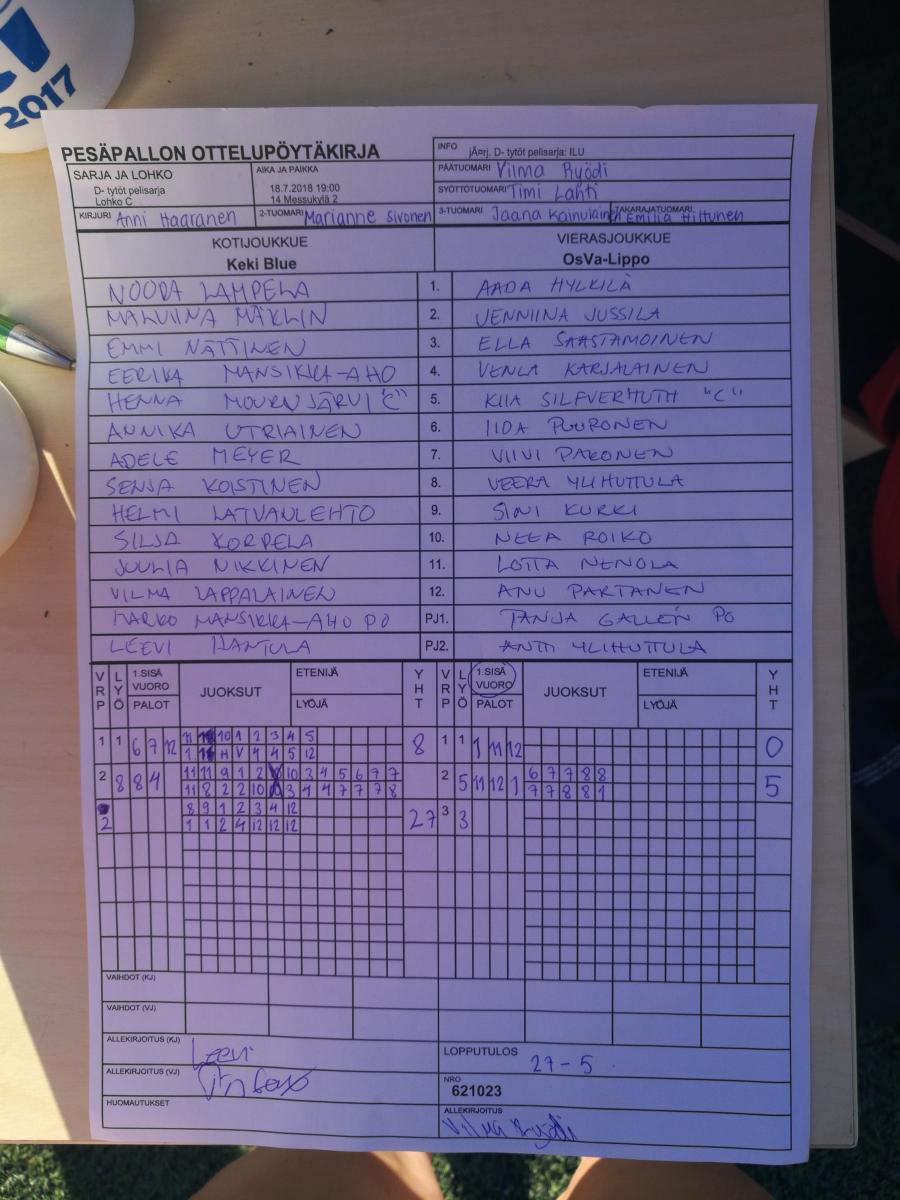 2017
PESÄPALLON OTTELUPÖYTÄKIRJA
INFO jÃ¤rj. D- tytöt pelisarja: ILU
SARJA JA LOHKO
D- tytöt pelisarja
Lohko C
AIKA JA PAIKKA
18.7.2018 19:00
14 Messukylä 2
PÄÄTUOMARI Vilma Ryödi
SYÖTTÖTUOMARI Timi Lahti
KIRJURI Anni Haaranen 2-TUOMARI Marianne Sivonen 3-TUOMARI Jaana Kainulainen TAKARAJATUOMARI Emilia Hiltunen
KOTIJOUKKUE VIERASJOUKKUE
Keki Blue OsVa-Lippo
NOORA LAMPELA 1. AADA HYLKILÄ
MALVIINA MÄKLIN 2. VENNIINA JUSSILA
EMMI NÄTTINEN 3. ELLA SAASTAMOINEN
EERIKA MANSIKKA-AHO 4. VENLA KARJALAINEN
HENNA MOURUJÄRVI "C" 5. KIIA SILFVERHUTH "C"
ANNIKA UTRIAINEN 6. IIDA PUURONEN
ADELE MEYER 7. VIIVI PAKONEN
SENJA KOISTINEN 8. VEERA YLIHUTTULA
HELMI LATVANLEHTO 9. SINI KURKI
SILJA KORPELA 10. NEEA ROIKO
JUULIA NIKKINEN 11. LOTTA NENOLA
VILMA LAPPALAINEN 12. ANU PARTANEN
MARKO MANSIKKA-AHO PO PJ1. TANJA GALLEN PO
LEEVI HANTULA PJ2. ANTTI YLIHUTTULA
VRP LYÖ 1.SISÄ VUORO PALOT JUOKSUT ETENIJÄ LYÖJÄ YHT VRP LYÖ 1.SISÄ VUORO PALOT JUOKSUT ETENIJÄ LYÖJÄ YHT
1 1 6 7 12 11 10 1 2 3 4 5 8 1 1 1 11 12 0
1 H V 4 4 5 12
2 8 8 4 11 11 9 1 2 10 3 4 5 6 7 7 2 5 11 12 1 6 7 7 8 8 5
11 8 2 2 10 3 4 4 7 7 7 8 7 7 8 8 1
2 8 9 1 2 3 4 12 27 3 3
1 1 2 4 12 12 12
VAIHDOT (KJ)
VAIHDOT (VJ)
ALLEKIRJOITUS (KJ) Leevi
LOPPUTULOS 27-5
ALLEKIRJOITUS (VJ)
NRO
621023
HUOMAUTUKSET
ALLEKIRJOITUS Vilma Ryödi